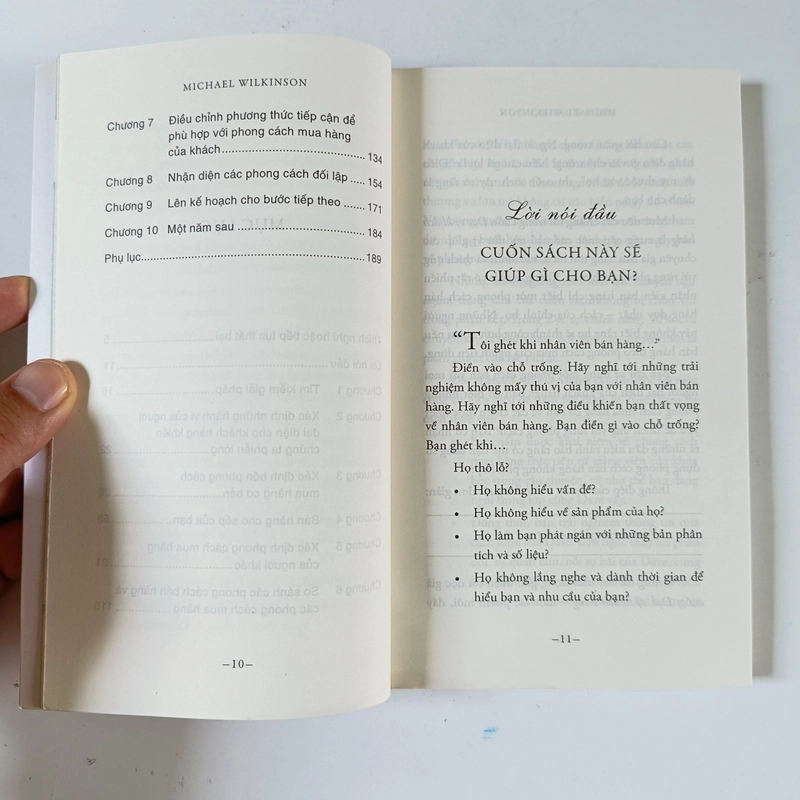 MICHAEL WILKINSON
Chương 7 Điều chỉnh phương thức tiếp cận để
phù hợp với phong cách mua hàng
của khách.......................................134
Chương 8 Nhận diện các phong cách đối lập.....154
Chương 9 Lên kế hoạch cho bước tiếp theo......171
Chương 10 Một năm sau.................................184
Phụ lục..........................................................189
–10–
Lời nói đầu
CUỐN SÁCH NÀY SẼ
GIÚP GÌ CHO BẠN?
“Tôi ghét khi nhân viên bán hàng...”
Điền vào chỗ trống. Hãy nghĩ tới những trải
nghiệm không mấy thú vị của bạn với nhân viên bán
hàng. Hãy nghĩ tới những điều khiến bạn thất vọng
về nhân viên bán hàng. Bạn điền gì vào chỗ trống?
Bạn ghét khi...
Họ thô lỗ?
• Họ không hiểu vấn đề?
• Họ không hiểu về sản phẩm của họ?
• Họ làm bạn phát ngán với những bản phân
tích và số liệu?
• Họ không lắng nghe và dành thời gian để
hiểu bạn và nhu cầu của bạn?
–11–